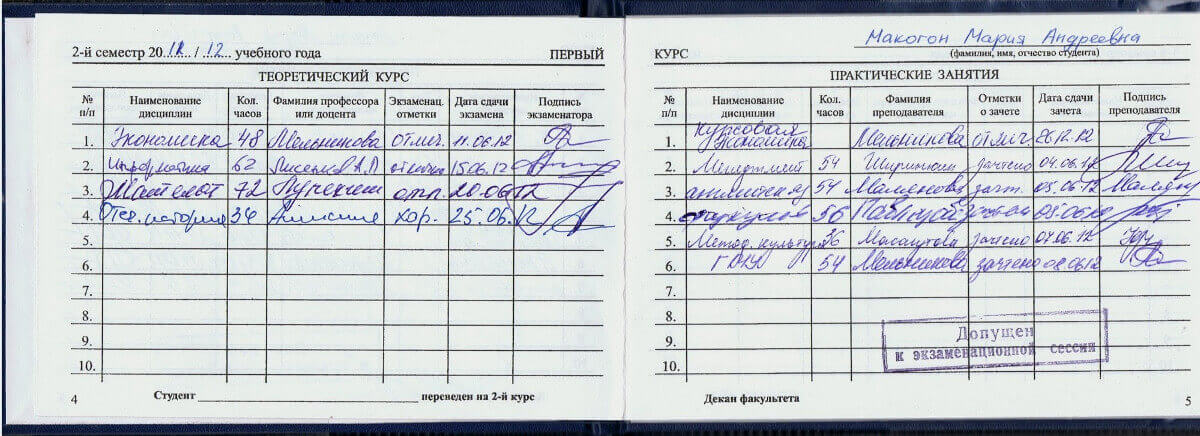 2-й семестр 20 11 / 12 учебного года ПЕРВЫЙ
ТЕОРЕТИЧЕСКИЙ КУРС
№ п/п Наименование дисциплин Кол. часов Фамилия профессора или доцента Экзаменац. отметки Дата сдачи экзамена Подпись экзаменатора
1. Экономика 48 Мельникова отлич. 11.06.12
2. Информатика 62 Лисенко отлично 15.06.12
3. 72 отл. 20.06.12
4. Отеч. история 36 хор. 25.06.12
5.
6.
7.
8.
9.
10.
4 Студент переведен на 2-й курс
КУРС Макогон Мария Андреевна
(фамилия, имя, отчество студента)
ПРАКТИЧЕСКИЕ ЗАНЯТИЯ
№ п/п Наименование дисциплин Кол. часов Фамилия преподавателя Отметки о зачете Дата сдачи зачета Подпись преподавателя
1. Курсовая Экономика Мельникова отлич. 26.12.12
2. Менеджмент 54 зачтено 04.06.12
3. английский 54 зачт. 05.06.12
4. 56 05.06
5. Метод. культур. 36 зачтено 07.06.12
6. 54 Мельникова зачтено 08.06.12
7.
8.
9.
10.
Допущен
к экзаменационной сессии
Декан факультета 5